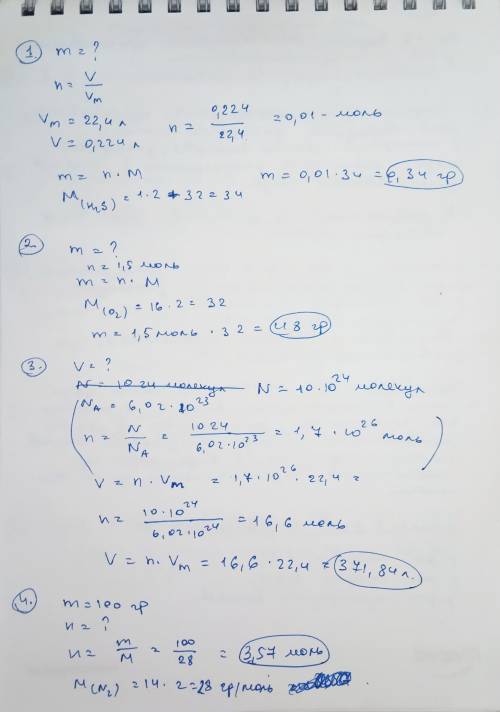 1. m = ?
n = V / Vm
Vm = 22,4 л
V = 0,224 л
n = 0,224 / 22,4 = 0,01 - моль
m = n · M
m = 0,01 · 34 = 0,34 гр
M(H2S) = 1·2 + 32 = 34
2. m = ?
n = 1,5 моль
m = n · M
M(O2) = 16 · 2 = 32
m = 1,5 моль · 32 = 48 гр
3. V = ?
N = 1024 молекул N = 10·10^24 молекул
NA = 6,02 · 10^23
n = N / NA = 1024 / 6,02·10^23 = 1,7 · 10^26 моль
V = n · Vm = 1,7 · 10^26 · 22,4 =
n = 10·10^24 / 6,02·10^24 = 16,6 моль
V = n · Vm = 16,6 · 22,4 = 371,84 л.
4. m = 100 гр
n = ?
n = m / M = 100 / 28 = 3,57 моль
M(N2) = 14 · 2 = 28 гр/моль